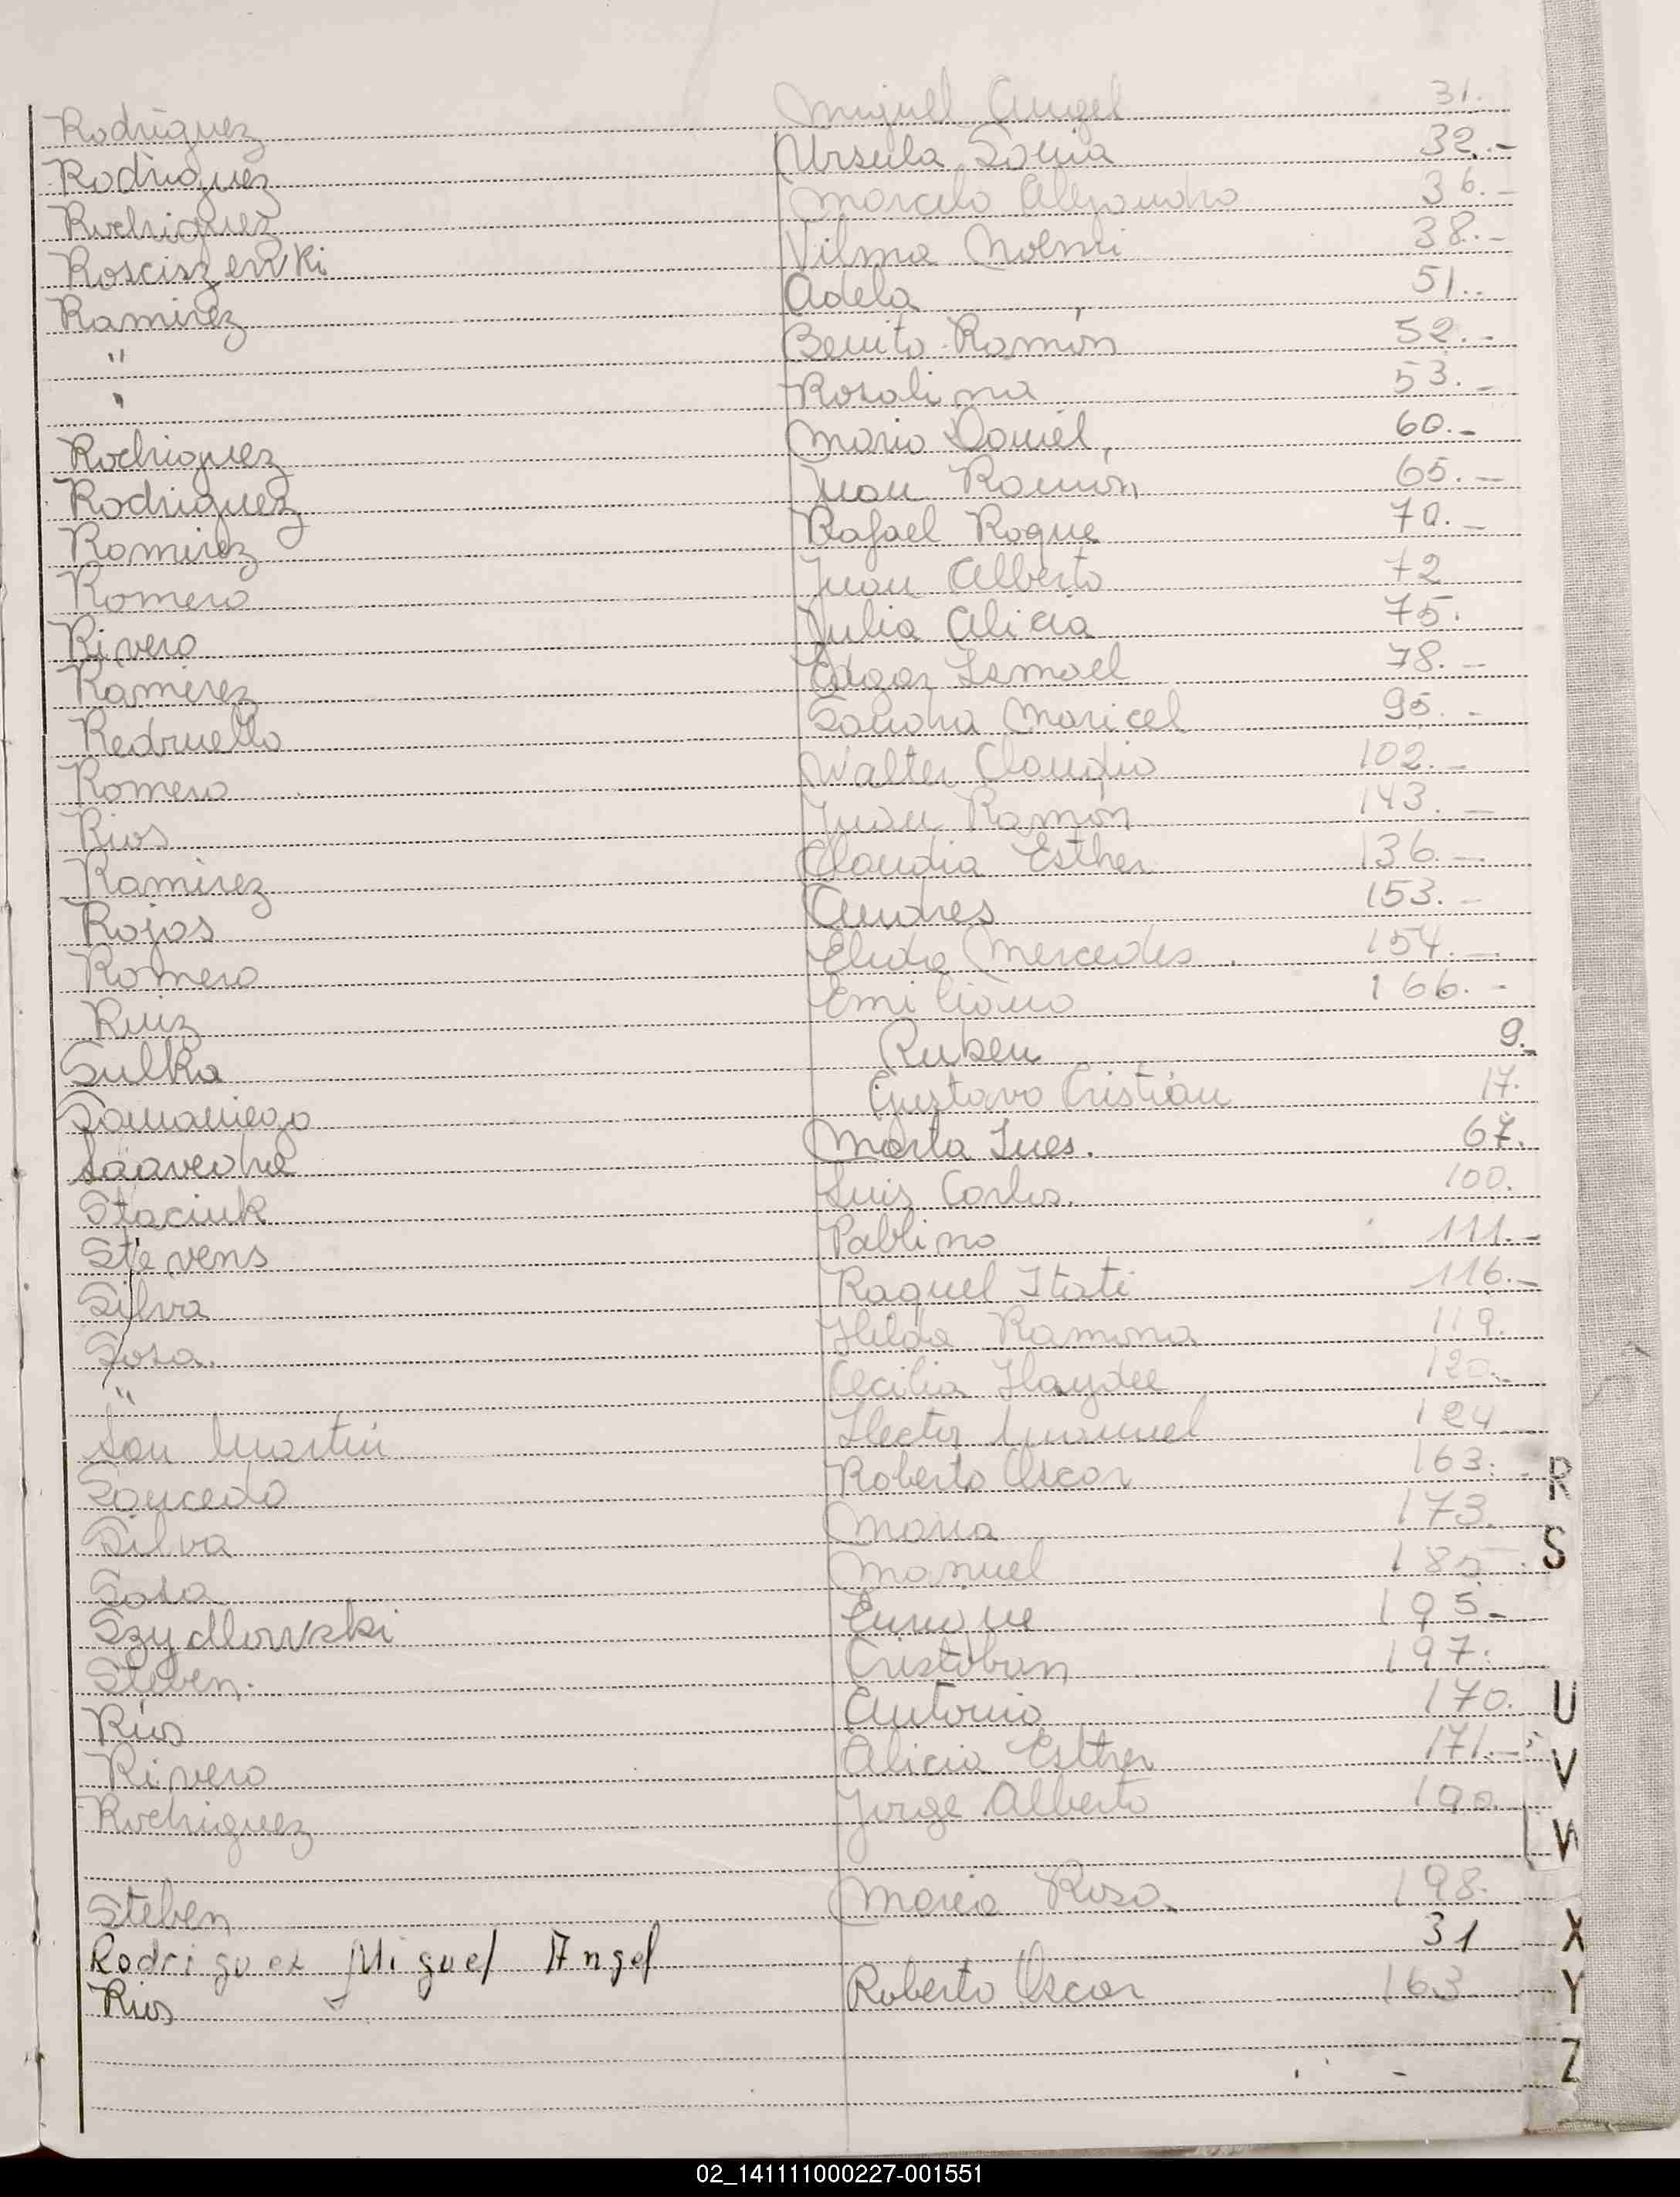 Rodriguez Miguel Angel 31.
Rodriguez Ursula Sonia 32.-
Rodriguez Marcelo Alejandro 36.-
Rosciszewki Vilma Noemi 38.-
Ramirez Adela 51..
" Benito Ramón 52.-
" Rosalina 53.-
Rodriguez Mario Daniel 60.-
Rodriguez Juan Ramón 65.-
Ramirez Rafael Roque 70.-
Romero Juan Alberto 72
Rivero Julia Alicia 75.
Ramirez Edgar Ismael 78.-
Redruello Sandra Maricel 95.-
Romero Walter Claudio 102.-
Rios Juan Ramón 143.-
Ramirez Claudia Esther 136.-
Rojas Andres 153.-
Romero Elida Mercedes. 154.-
Ruiz Emiliano 166.-
Sulka Ruben 9.-
Samaniego Gustavo Cristián 17.
Marta Ines. 67.
Staciuk Luis Carlos. 100.
Stevens Pablino 111.-
Silva Raquel Itati 116.-
Sosa. Hilda Ramona 119.
" Cecilia Haydee 120.-
San Martin Hector Manuel 124
Saucedo Roberto Oscar 163.-
Silva Maria 173.
Sosa Manuel 185
Szydlowski Enrique 195-
Steben. Cristoban 197.
Rios Antonio 170.
Rivero Alicia Esther 171.-
Rodriguez Jorge Alberto 190
Steben Maria Rosa. 198.
Rodriguez Miguel Angel 31
Rios Roberto Oscar 163
R
S
U
V
W
X
Y
Z
02_141111000227-001551